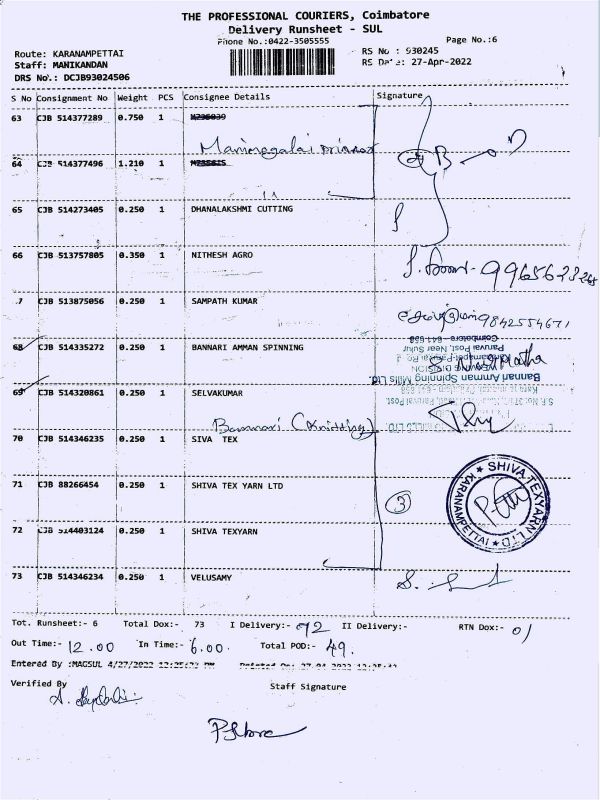 THE PROFESSIONAL COURIERS, Coimbatore
Delivery Runsheet - SUL
Phone No.:0422-3505555
Page No.:6
Route: KARANAMPETTAI
RS No : 930245
Staff: MANIKANDAN
RS Date: 27-Apr-2022
DRS No.: DCJB93024506
S No Consignment No Weight PCS Consignee Details Signature
63 CJB 514377289 0.750 1
64 CJB 514377496 1.210 1
65 CJB 514273405 0.250 1 DHANALAKSHMI CUTTING
66 CJB 513757805 0.350 1 NITHESH AGRO
67 CJB 513875056 0.250 1 SAMPATH KUMAR
9842554671
68 CJB 514335272 0.250 1 BANNARI AMMAN SPINNING
Coimbatore - 641 658
Paruvai Post, Near Sulur
WEAVING DIVISION
Bannari Amman Spinning Mills Ltd.
69 CJB 514320861 0.250 1 SELVAKUMAR
Bannari (Knitting)
70 CJB 514346235 0.250 1 SIVA TEX
71 CJB 88266454 0.250 1 SHIVA TEX YARN LTD
3
SHIVA TEXYARN LTD
KARANAMPETTAI
72 CJB 514403124 0.250 1 SHIVA TEXYARN
73 CJB 514346234 0.250 1 VELUSAMY
Tot. Runsheet:- 6 Total Dox:- 73 I Delivery:- 72 II Delivery:- RTN Dox:- 01
Out Time:- 12.00 In Time:- 6.00 Total POD:- 49.
Entered By :MAGSUL 4/27/2022
Verified By
Staff Signature